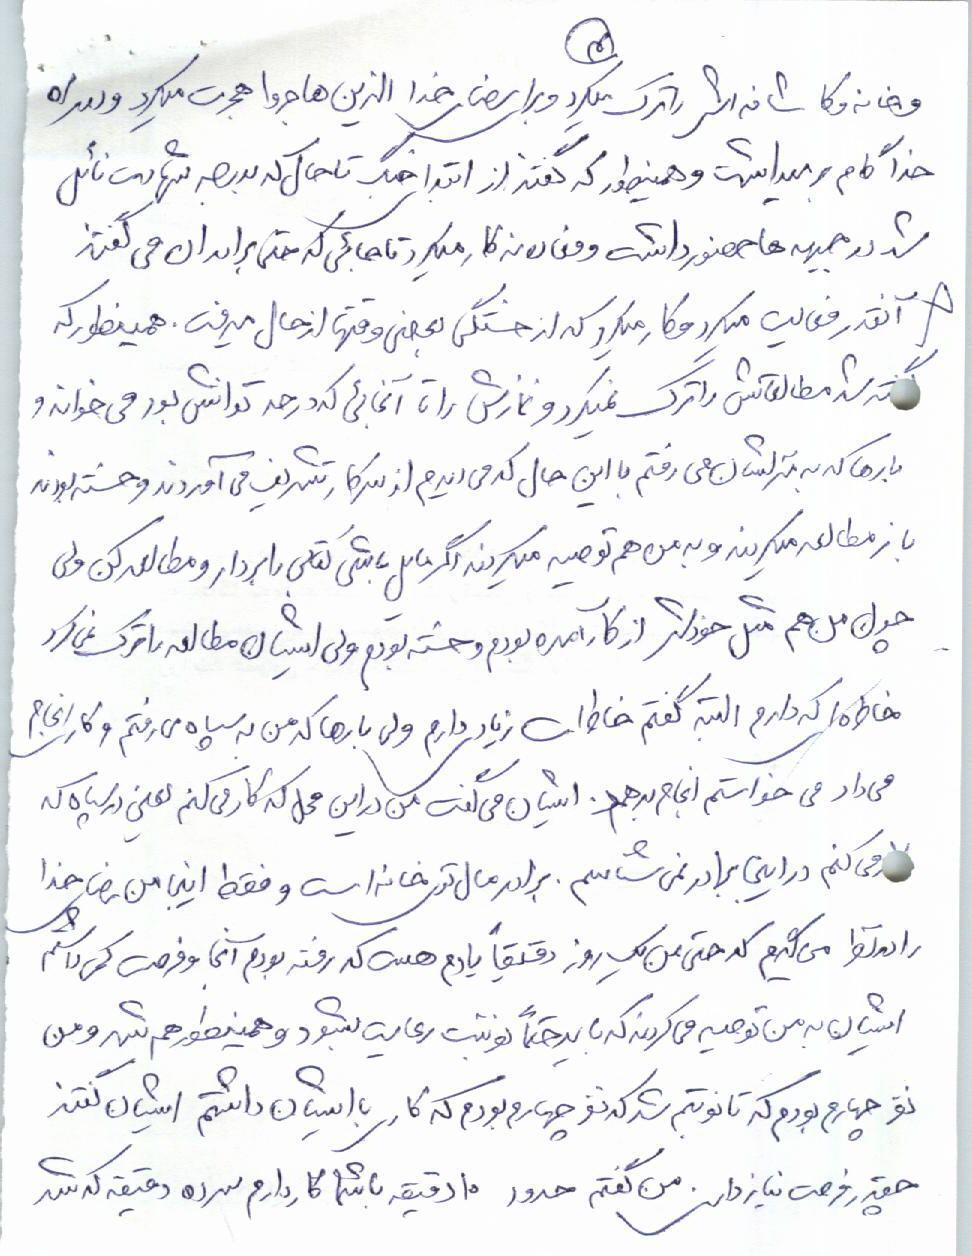 ۳
و خانه و کاشانه اش را ترک میکرد و برای رضای خدا الذین هاجروا هجرت میکرد و در راه
خدا گام بر میداشت و همینطور که گفتند از ابتدای جنگ تا حال که بدرجه شهادت نائل
شد در جبهه ها حضور داشت و فعالانه کار میکرد تا جائی که حتی برادران می گفتند
آنقدر فعالیت میکرد و کار میکرد که از خستگی بعضی وقتها از حال میرفت. همینطور که
گفته شد مطالعاتش را ترک نمیکرد و نمازش را تا آنجائی که در حد توانش بود می خواند و
بارها که به منزلشان می رفتم با این حال که می دیدم از سر کار تشریف می آوردند و خسته بودند
باز مطالعه میکردند و به من هم توصیه میکردند اگر مایل باشی کتابی را بردار و مطالعه کن ولی
چون من هم مثل خودش از کار آمده بودم و خسته بودم ولی ایشان مطالعه را ترک نمی کرد
خاطره ای که دارم البته گفتم خاطرات زیادی دارم ولی بارها که من به سپاه می رفتم و کاری انجام
می داد می خواستم انجام بدهم. ایشان می گفت من در این محل که کار می کنم یعنی در سپاه که
کار می کنم در اینجا برادر نمی شناسم. برادر مال توی خانه است و فقط اینجا من رضای خدا
را در نظر می گیرم که حتی من یک روز دقیقاً یادم هست که رفته بودم آنجا و فرصت کمی داشتم
ایشان به من توصیه می کردند که باید حتماً نوبت رعایت بشود و همینطور هم شد و من
نفر چهارم بودم که تا نوبتم شد که نفر چهارم بودم که کاری با ایشان داشتم ایشان گفتند
چقدر فرصت نیاز داری. من گفتم حدود ۱۰ دقیقه با شما کار دارم سر ده دقیقه که شد